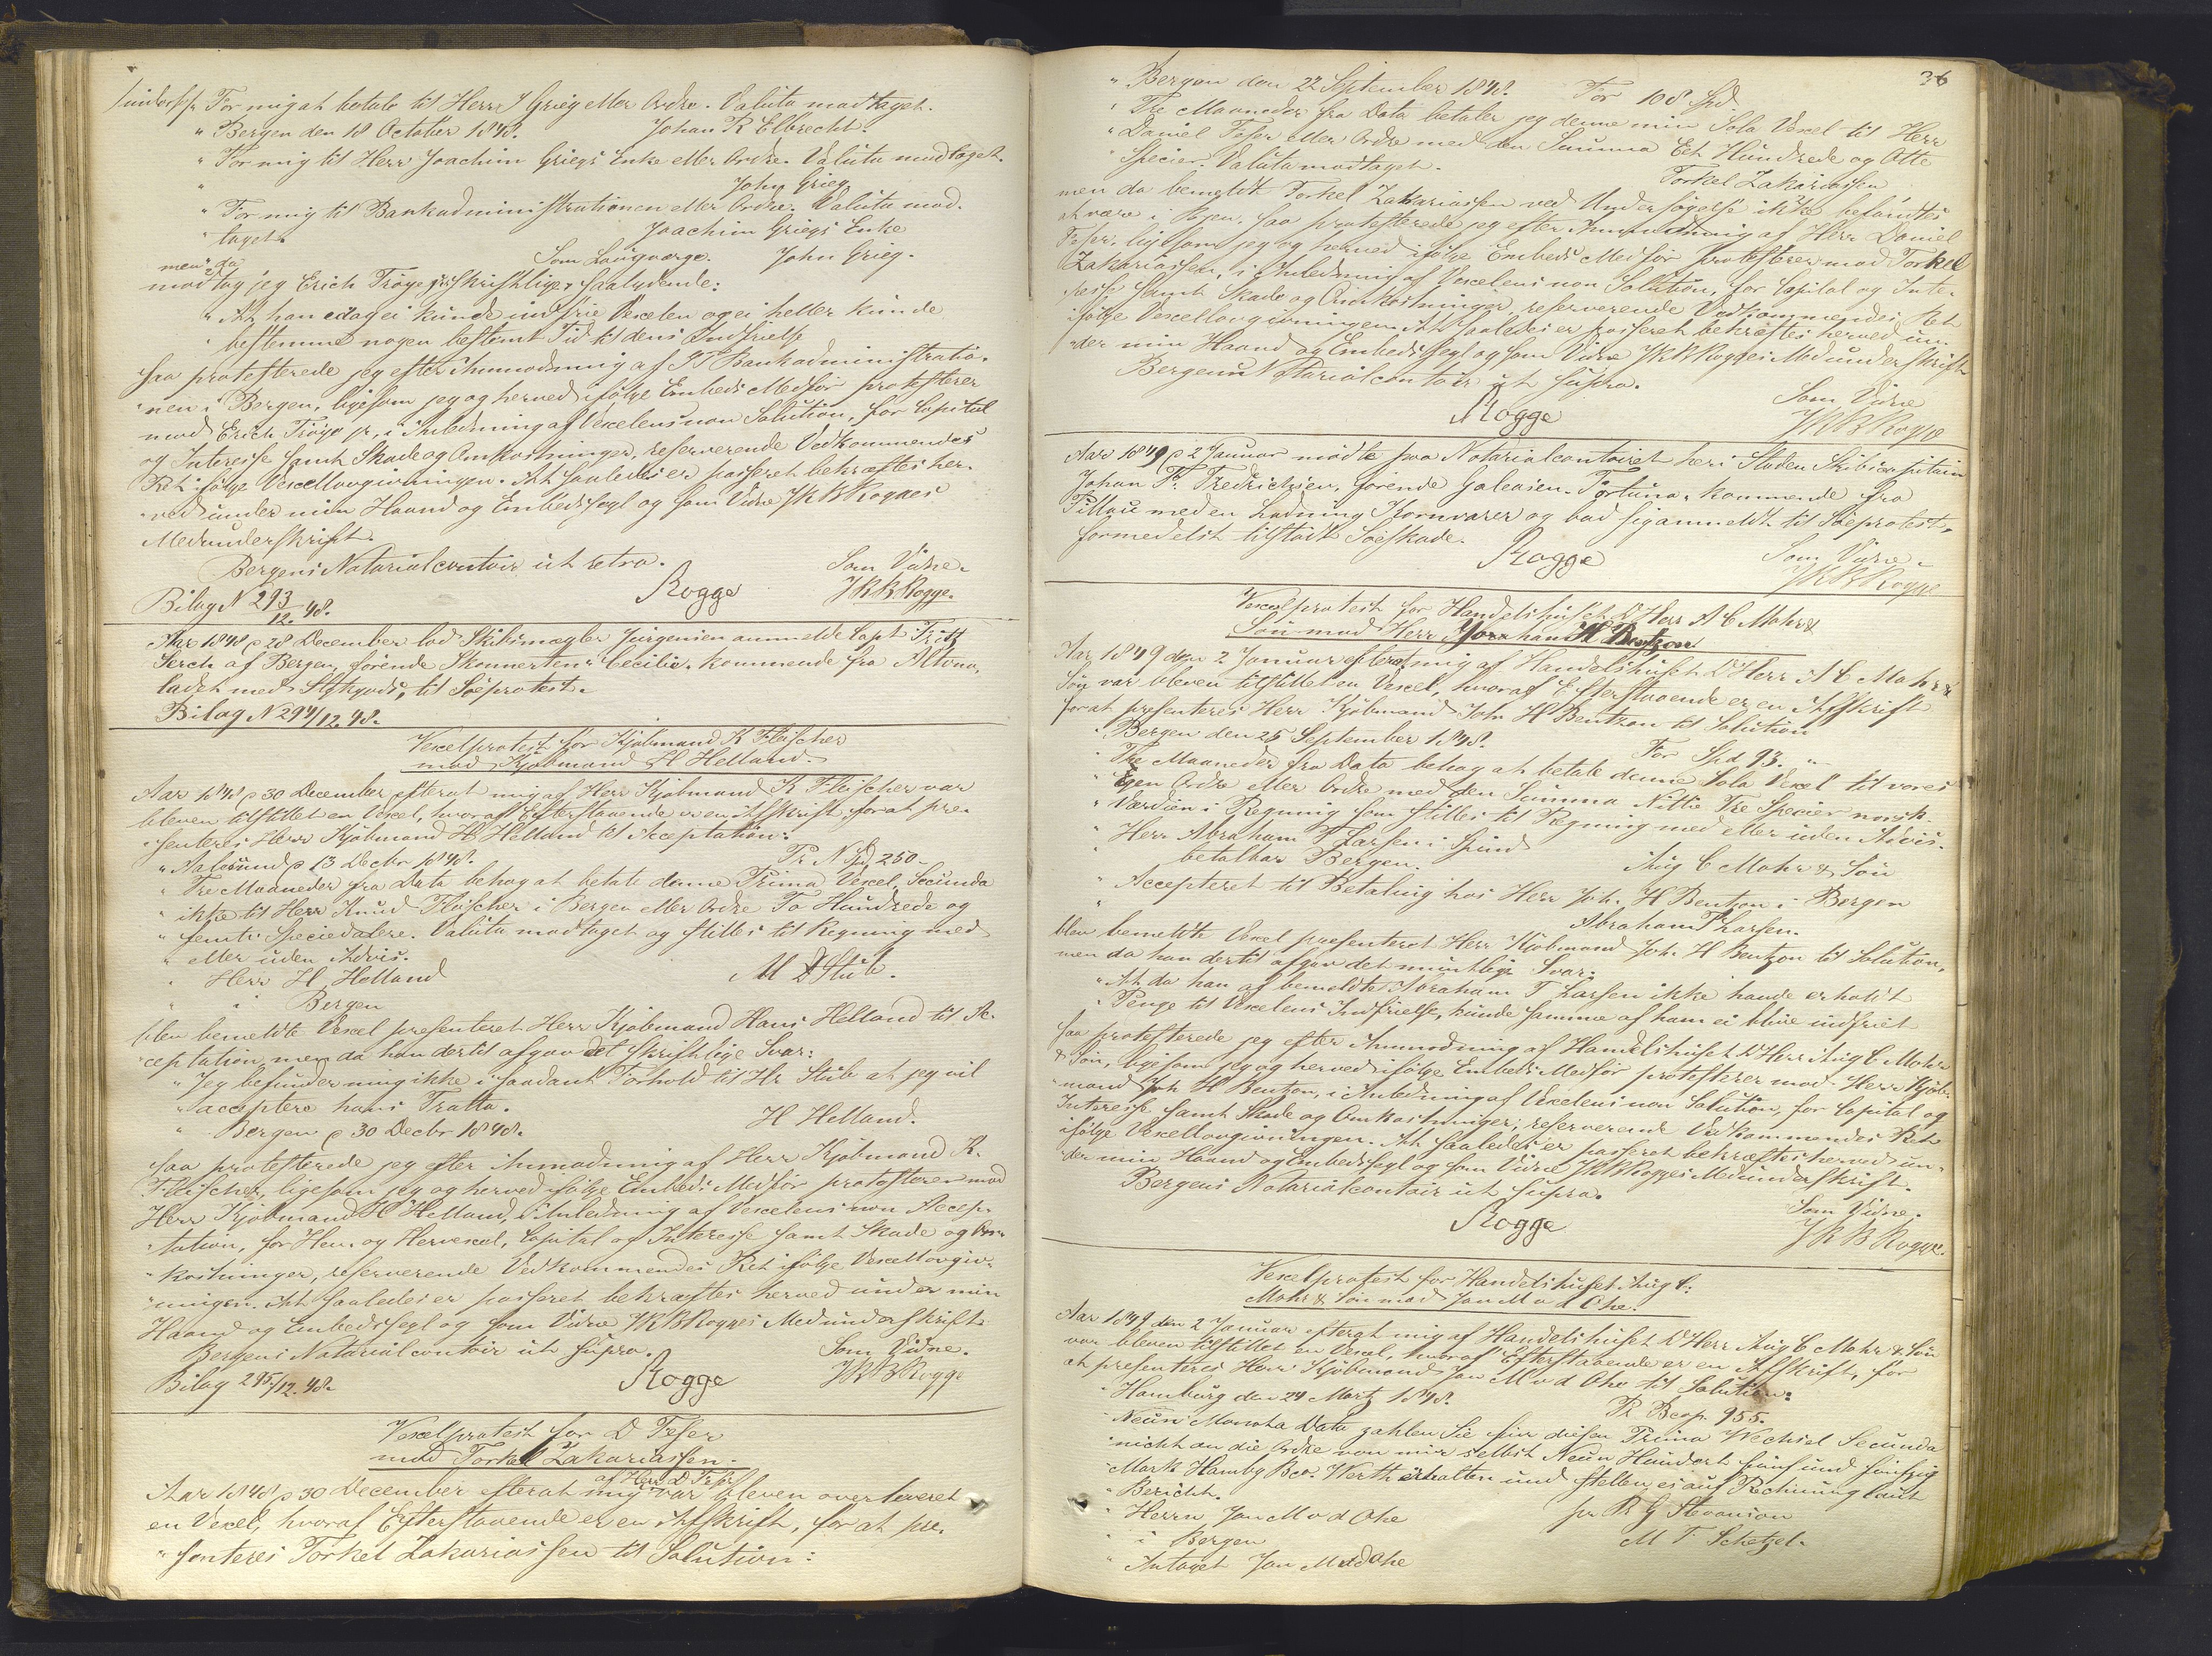 For mig at betale til Herr J Grieg eller Ordre. Valuta modtaget.
" Bergen den 18 October 1848. Johan R Elbrecht.
" For mig til Herr Joachim Griegs Enke eller Ordre. Valuta modtaget.
" John Grieg
" For mig til Bankadministrationen eller Ordre. Valuta mod-
" taget. Joachim Griegs Enke
Som Laugværge. John Grieg.
men da
modtog jeg Erich Trøye jr skriftlige, saalydende:
" At han idag ei kunde indfrie Vexelen og ei heller kunde
" bestemme nogen bestemt Tid til dens Indfrielse
saa protesterede jeg efter Anmodning af Bankadministratio-
"nen i Bergen, ligesom jeg og herved ifølge Embeds Medfør protesterer
mod Erich Trøye jr, i Anledning af Vexelens non Solution, for Capital
og Interesse samt Skade og Omkostninger, reserverende Vedkommendes
Ret ifølge Vexellovgivningen. At saaledes er passeret bekræftes her-
"ved under min Haand og Embedssegl og som Vidne J K B Rogges
Medunderskrift.
Bergens Notarialcontoir ut retro. Som Vidne.
Bilag N 293/12. 48. Rogge J K B Rogge.
Aar 1848 p 28 December lod Skibsmægler Jürgensen anmelde Capt Fritz
Lerch af Bergen, førende Skonnerten "Cecilie", kommende fra Altona,
ladet med Stykgods, til Søeprotest.
Bilag N 294/12. 48.
Vexelprotest for Kjøbmand K Fleischer
mod Kjøbmand H Helland.
Aar 1848 p 30 December efterat mig af Herr Kjøbmand K Fleischer var
bleven tilstillet en Vexel, hvoraf Efterstaaende er en Afskrift, for at præ-
"senteres Herr Kjøbmand H Helland til Acceptation:
" Aalesund p 13 Decbr 1848. Pr N Spd 250.
" Tre Maaneder fra Dato behag at betale denne Prima Vexel, Secunda
" ikke til Herr Knud Fleischer i Bergen eller Ordre To Hundrede og
" femti Speciedalere. Valuta modtaget og stilles til Regning med
" eller uden Advis.
" Herr H Helland M D Stub.
" i Bergen
blev bemeldte Vexel presenteret Herr Kjøbmand Hans Helland til Ac-
"ceptation, men da han dertil afgav det skriftlige Svar:
" Jeg befinder mig ikke i saadant Forhold til Hr Stub at jeg vil
" acceptere hans Tratta.
" Bergen p 30 Decbr 1848. H Helland.
saa protesterede jeg efter Anmodning af Herr Kjøbmand K.
Fleischer, ligesom jeg og herved ifølge Embeds Medfør protesterer mod
Herr Kjøbmand H Helland, i Anledning af Vexelens non Accep-
"tation, for Hen- og Hervexel, Capital og Interesse samt Skade og Om-
"kostninger, reserverende Vedkommendes Ret ifølge Vexellovgiv-
"ningen. At saaledes er passeret bekræftes herved under min
Haand og Embedssegl og som Vidne J K B Rogges Medunderskrift
Bergens Notarialcontoir ut supra. Som Vidne.
Bilag 295/12. 48. Rogge J K B Rogge
Vexelprotest for D Feser
mod Torkel Zakariassen.
af Herr D Feser
Aar 1848 p 30 December efterat mig var bleven overleveret
en Vexel, hvoraf Efterstaaende er en Afskrift, for at præ-
"senteres Torkel Zakariassen til Solution:
36
" Bergen den 22 September 1848. For 108 Spd.
" Tre Maaneder fra Dato betaler jeg denne min Sola Vexel til Herr
" Daniel Feser eller Ordre med den Summa Eet Hundrede og Otte
" Specier. Valuta modtaget. Torkel Zakariassen
men da bemeldte Torkel Zakariassen ved Undersøgelse ikke befandtes
at være i Byen, saa protesterede jeg efter Anmodning af Herr Daniel
Feser, ligesom jeg og herved ifølge Embeds Medfør protesterer mod Torkel
Zakariassen, i Anledning af Vexelens non Solution, for Capital og Inte-
"resse samt Skade og Omkostninger, reserverende Vedkommendes Ret
ifølge Vexellovgivningen. At saaledes er passeret bekræftes herved un-
"der min Haand og Embedssegl og som Vidne J K B Rogges Medunderskrift
Bergens Notarialcontoir ut supra. Som Vidne
Rogge J K B Rogge
Aar 1849 p 2 Januar mødte paa Notarialcontoiret her i Staden Skibscapitain
Johan Fr. Fredrichsen, førende Galeasen "Fortuna", kommende fra
Pillau med en Ladning Kornvarer og bad sig anmeldt til Søeprotest,
formedelst tilstødt Søeskade. Som Vidne.
Rogge J K B Rogge
Vexelprotest for Handelshuset D'Herr A C Mohr &
Søn mod Herr Johan H Bentzon
Aar 1849 den 2 Januar efterat mig af Handelshuset D'Herr A C Mohr &
Søn var bleven tilstillet en Vexel, hvoraf Efterstaaende er en Afskrift
for at presenteres Herr Kjøbmand Joh H Bentzon til Solution
" Bergen den 25 September 1848. For Spd 93. "
" Tre Maaneder fra Dato behag at betale denne Sola Vexel til vores
" Egen Ordre eller Ordre med den Summa Nittie Tre Specier norsk.
" Værdien i Regning som stilles til Regning med eller uden Advis.
" Herr Abraham T Larsen i Sund Aug C Mohr & Søn
" betalbar Bergen.
" Accepteret til Betaling hos Herr Joh. H Bentzon i Bergen
" Abraham T Larsen.
blev bemeldte Vexel presenteret Herr Kjøbmand Joh. H Bentzon til Solution,
men da han dertil afgav det mundtlige Svar:
" At da han af bemeldte Abraham T Larsen ikke havde erholdt
" Penge til Vexelens Indfrielse, kunde samme af ham ei blive indfriet
saa protesterede jeg efter Anmodning af Handelshuset D'Herr Aug C Mohr
& Søn, ligesom jeg og herved ifølge Embeds Medfør protesterer mod Herr Kjøb-
"mand Joh H Bentzon, i Anledning af Vexelens non Solution, for Capital og
Interesse samt Skade og Omkostninger, reserverende Vedkommendes Ret
ifølge Vexellovgivningen. At saaledes er passeret bekræftes herved un-
"der min Haand og Embedssegl og som Vidne J K B Rogges Medunderskrift.
Bergens Notarialcontoir ut supra. Som Vidne.
Rogge J K B Rogge.
Vexelprotest for Handelshuset Aug C:
Mohr & Søn mod Jan M v d Ohe.
Aar 1849 den 2 Januar efterat mig af Handelshuset D'Herr Aug C Mohr & Søn
var bleven tilstillet en Vexel, hvoraf Efterstaaende er en Afskrift, for
at presenteres Herr Kjøbmand Jan M v d Ohe til Solution:
" Hamburg den 24 Martz 1848. Pr Bco 955.
" Neun Monata Dato zahlen Sie für diesen Prima Wechsel Secunda
" nicht an die Ordre von mir selbst Neun Hundert fünf und fünfzig
" Mark Hambg Bco. Werth erhalten und stellen es auf Rechnung laut
" Bericht.
" Herrn Jan M v d Ohe pr R G Stevanson
" i Bergen M T Schetzel.
" Antaget Jan M v d Ohe